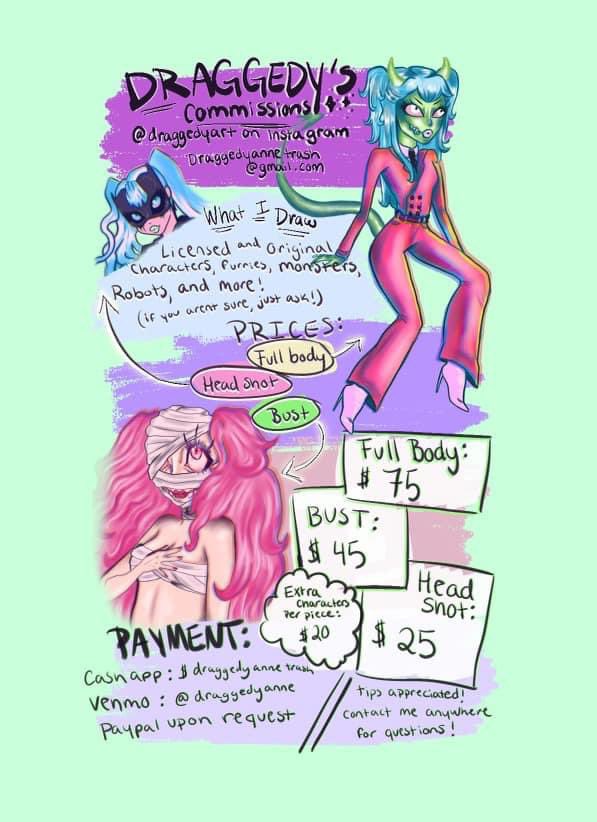 DRAGGEDY'S
Commissions
@draggedyart on instagram
Draggedyannetrash
@gmail.com
What I Draw
Licensed and Original
Characters, Furries, monsters,
Robots, and more!
(if you arent sure, just ask!)
PRICES:
Full body
Head shot
Bust
Full Body:
$ 75
BUST:
$ 45
Extra
Characters
Per piece:
$20
Head
Shot:
$ 25
PAYMENT:
Cash app: $draggedyannetrash
Venmo : @draggedyanne
Paypal upon request
tips appreciated!
Contact me anywhere
for questions!